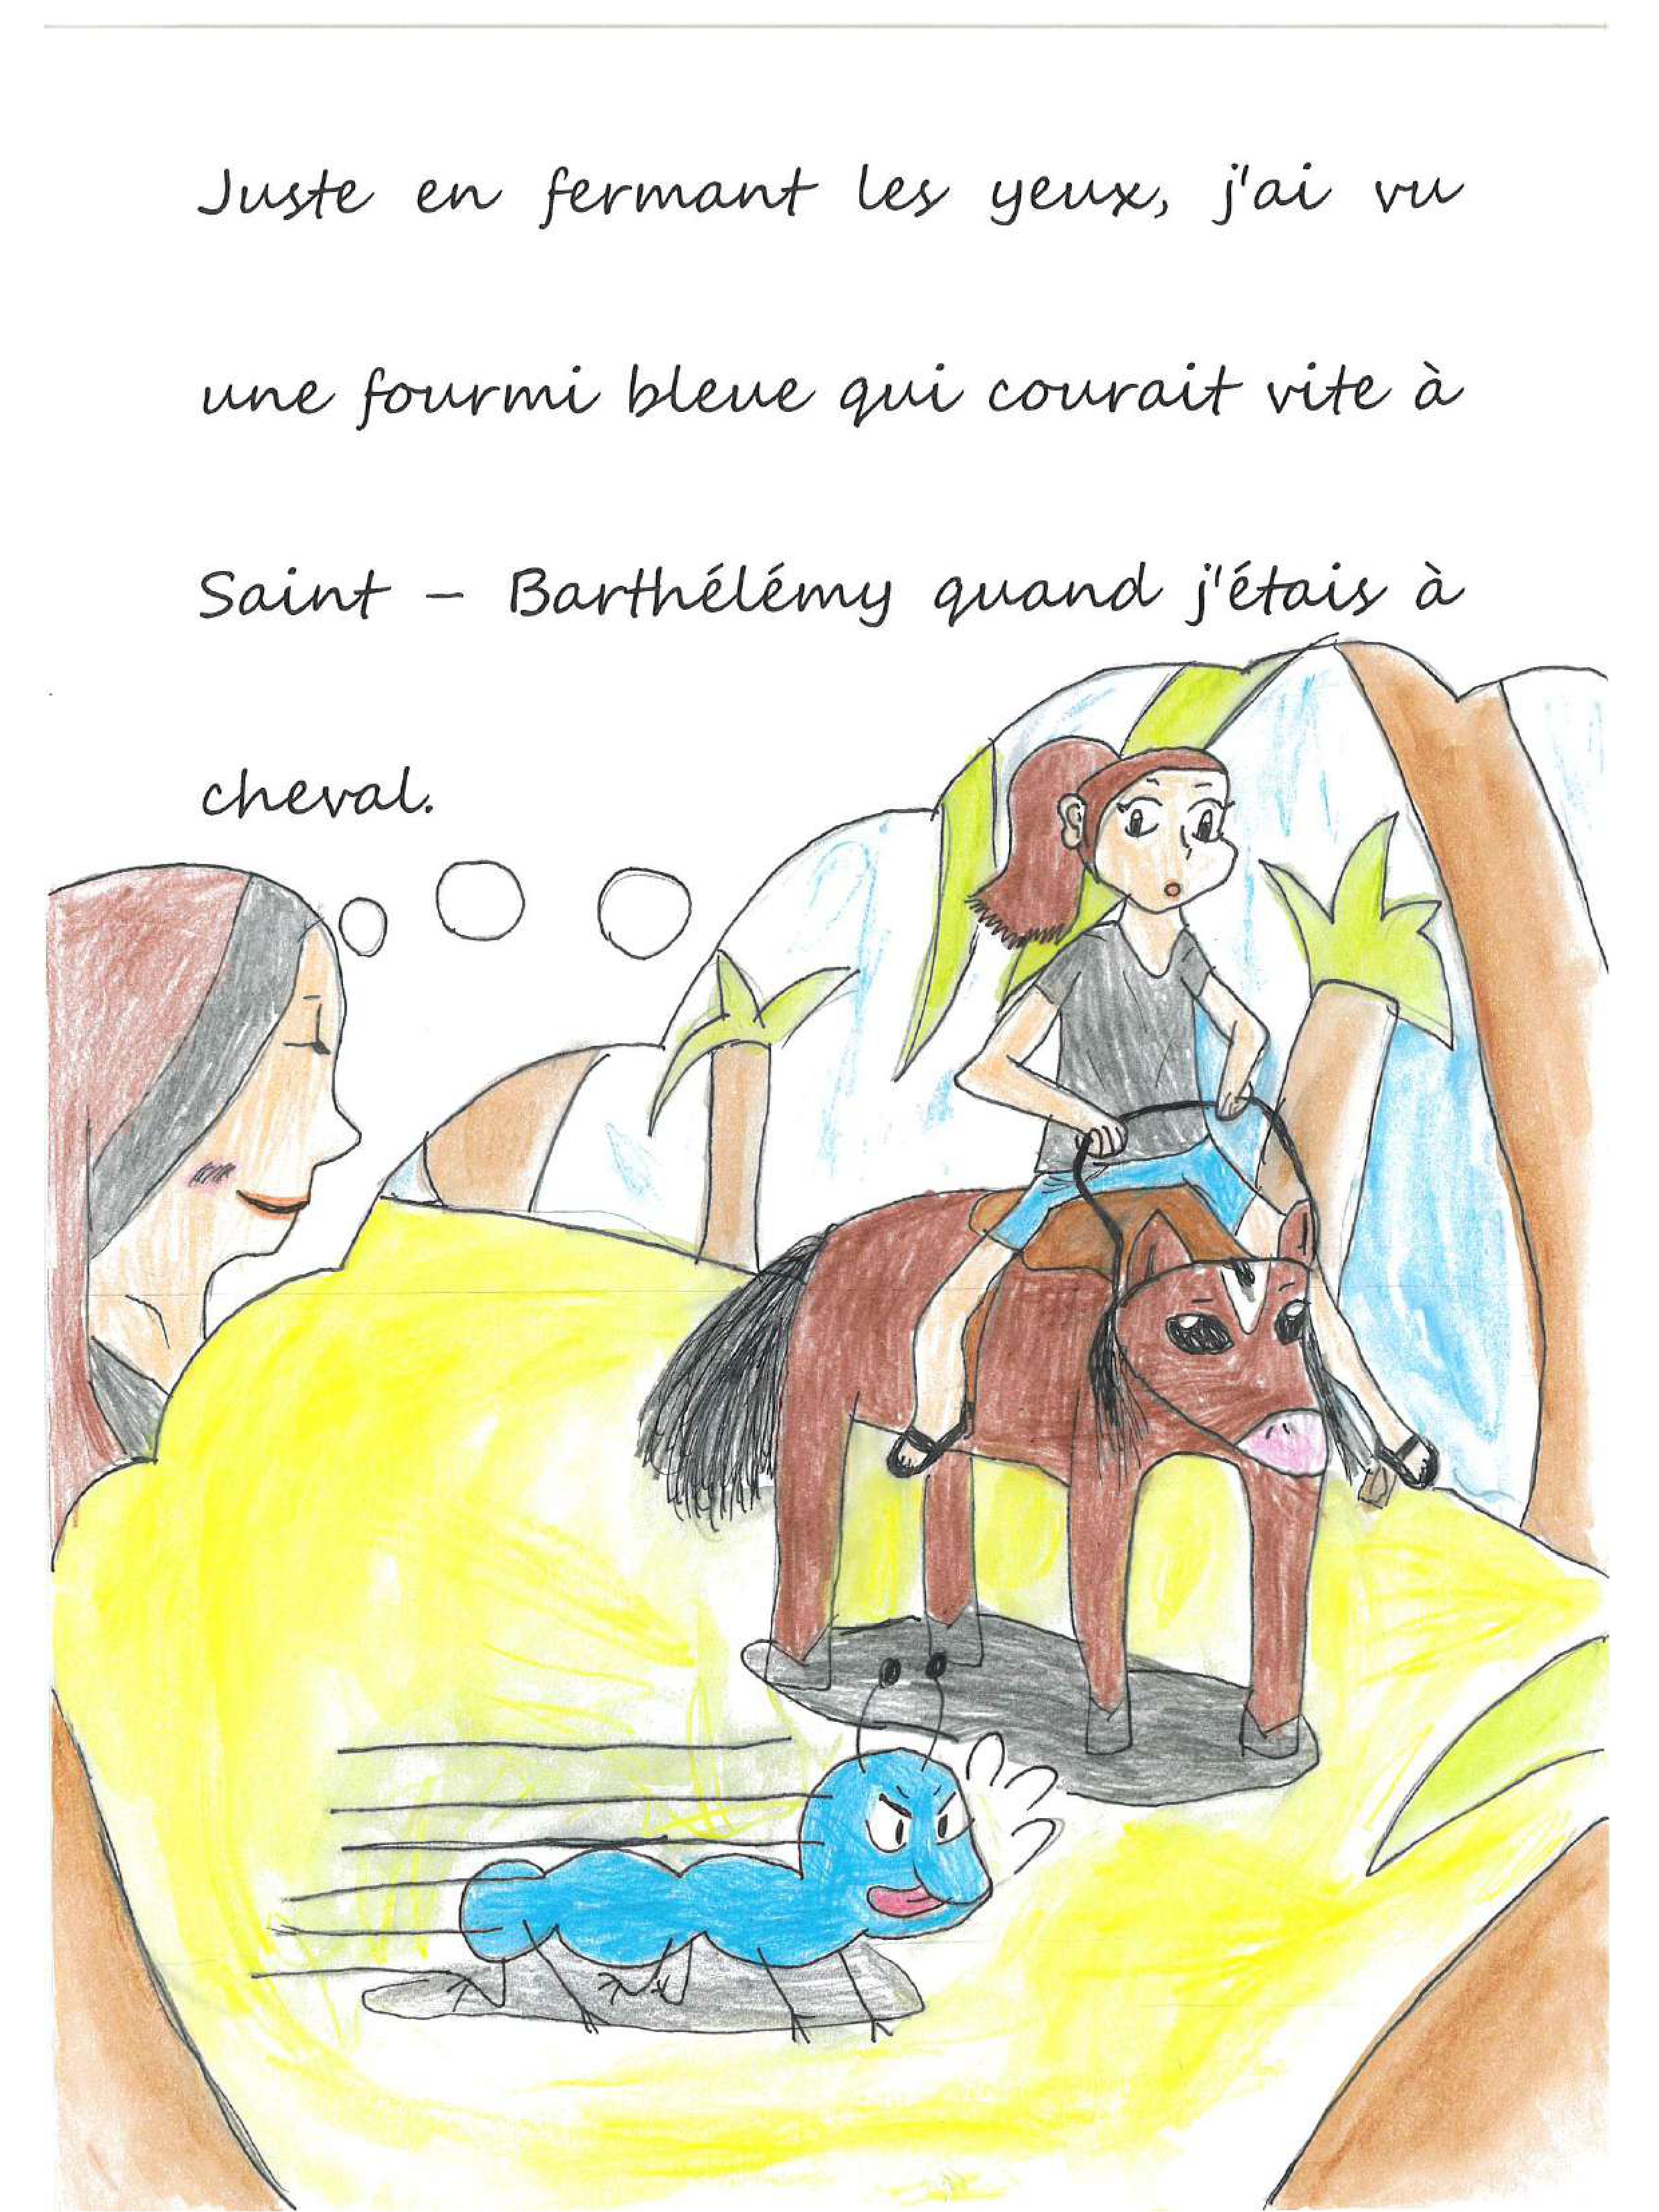 Juste en fermant les yeux, j'ai vu
une fourmi bleue qui courait vite à
Saint – Barthélémy quand j'étais à
cheval.